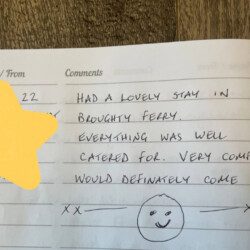 / From Comments
22 HAD A LOVELY STAY IN
BROUGHTY FERRY.
EVERYTHING WAS WELL
CATERED FOR. VERY
WOULD DEFINATELY COME
xx x